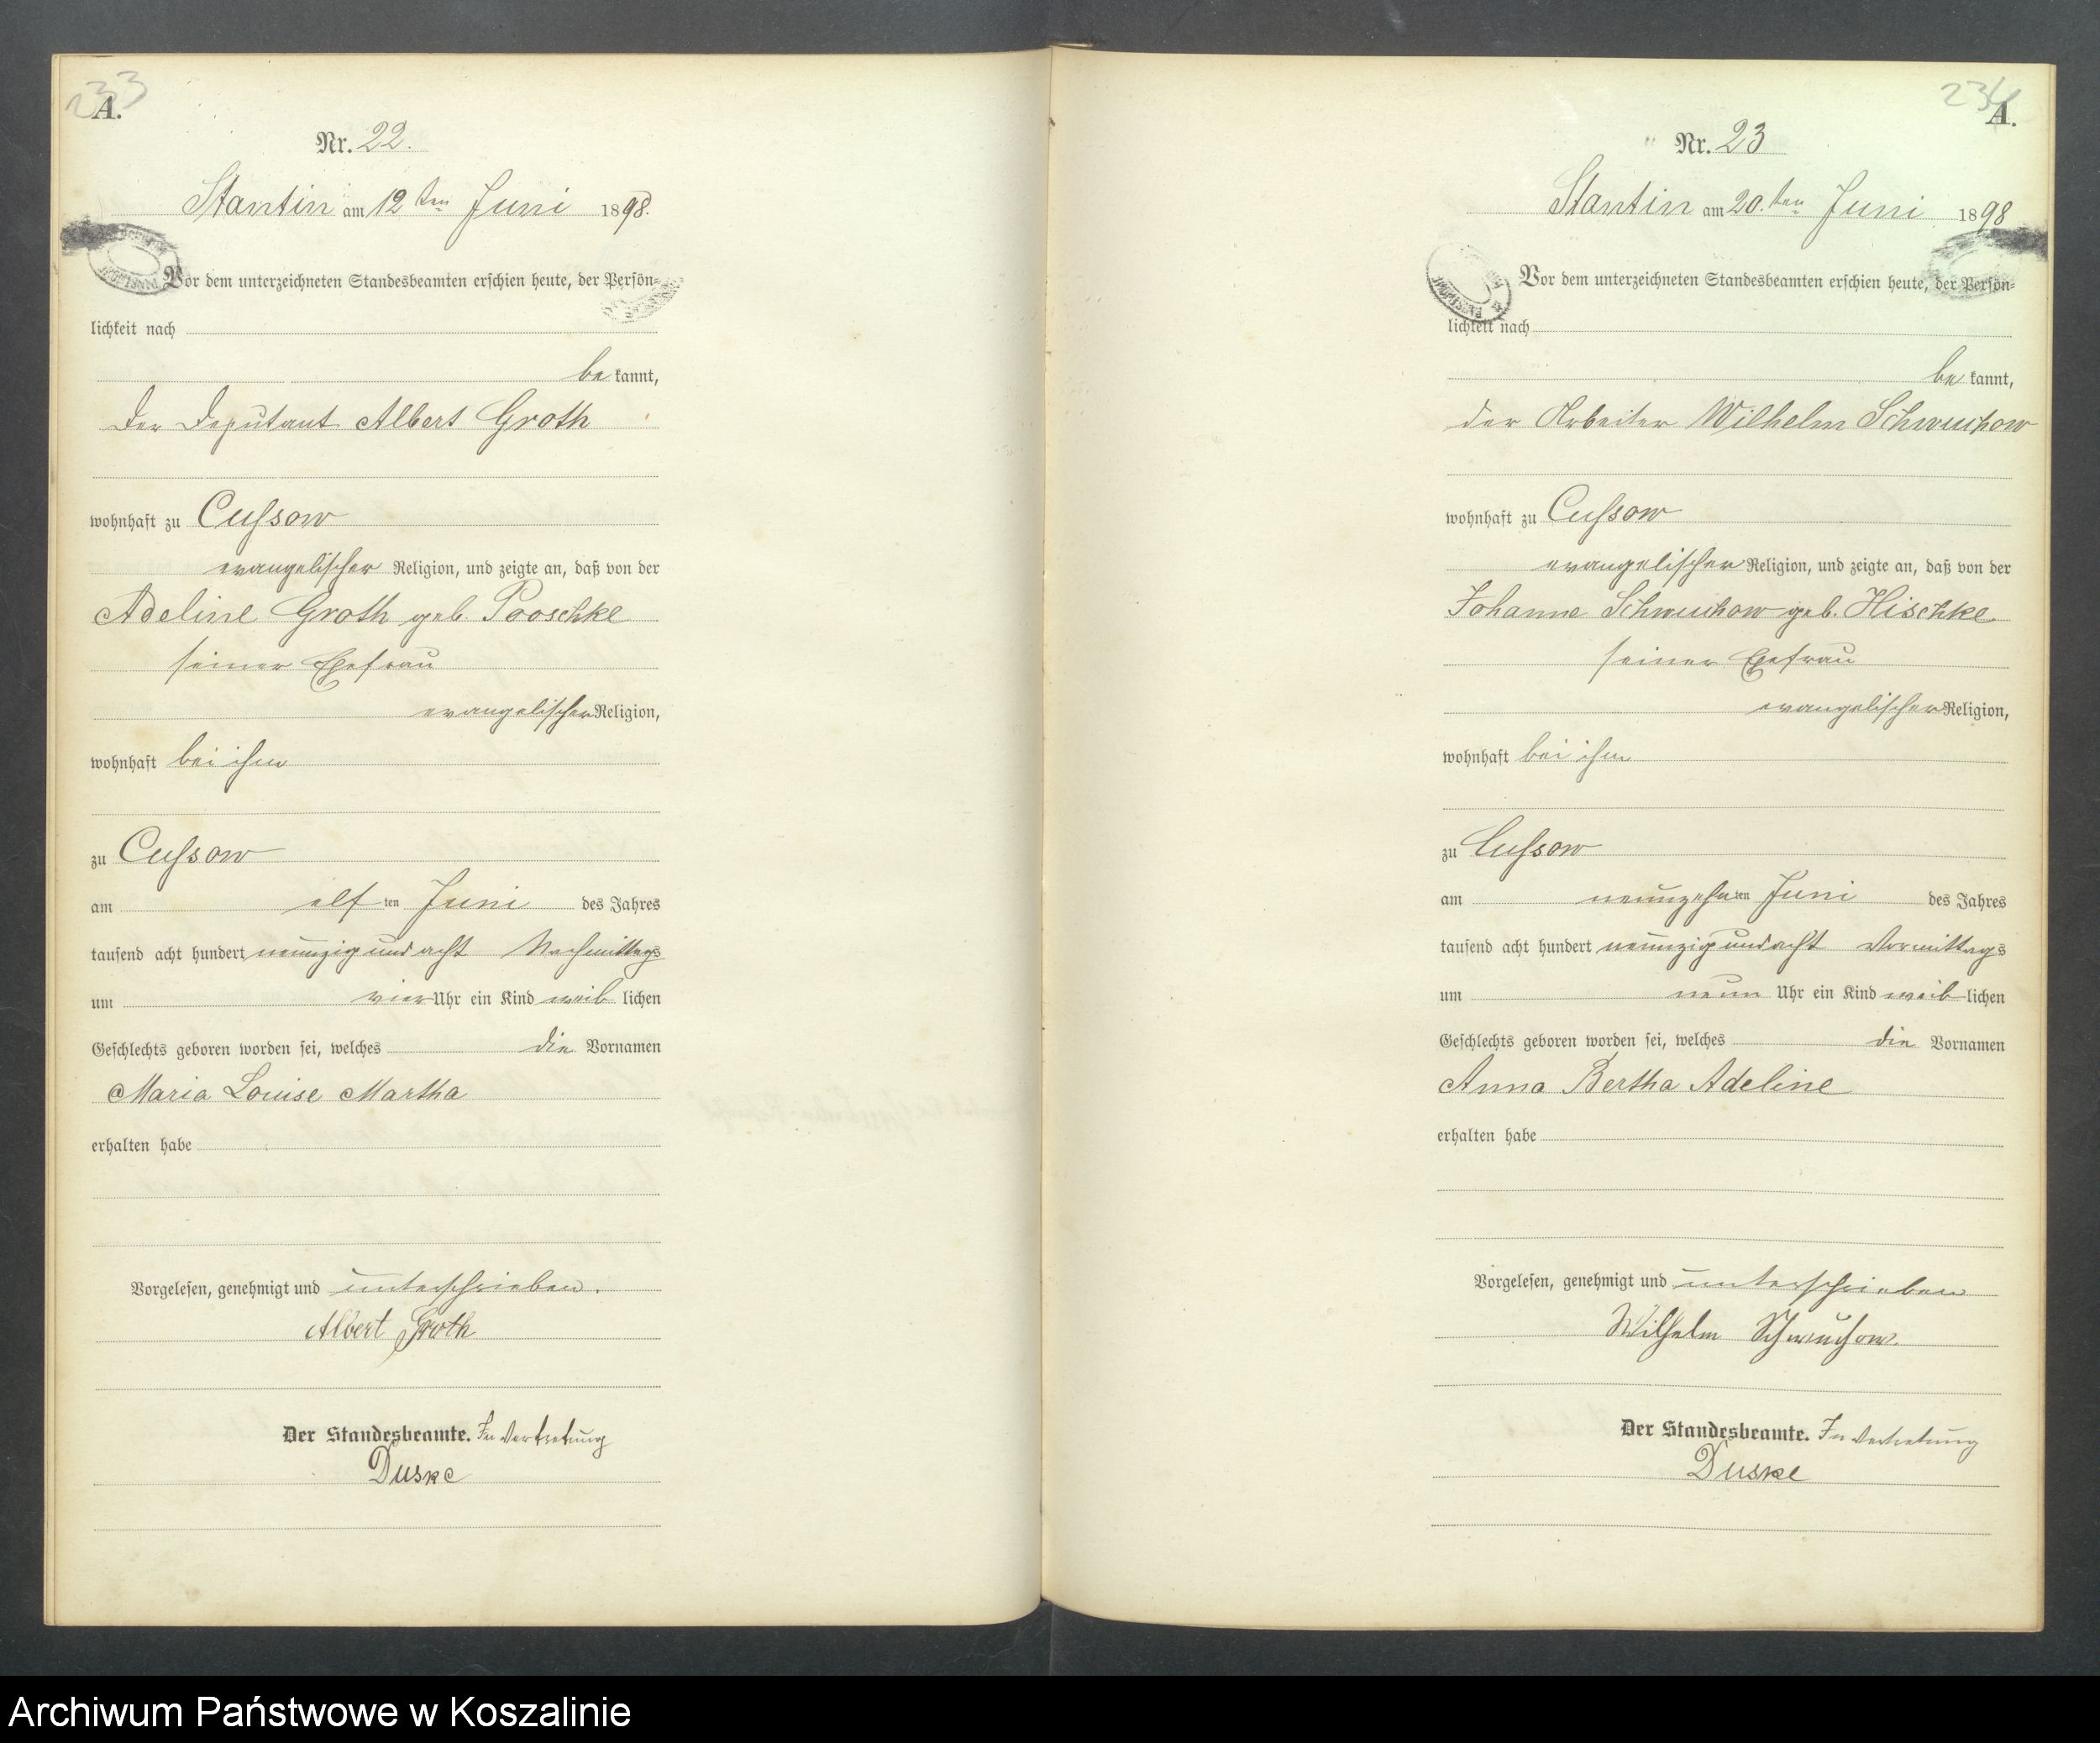 233
A.
Nr. 22.
Stantin am 12ten Juni 1898.
Vor dem unterzeichneten Standesbeamten erschien heute, der Persön-
lichkeit nach
be kannt,
der Deputant Albert Groth
wohnhaft zu Cussow
evangelischer Religion, und zeigte an, daß von der
Adeline Groth geb. Pooschke
seiner Ehefrau
evangelischer Religion,
wohnhaft bei ihm
zu Cussow
am elf ten Juni des Jahres
tausend acht hundert neunzig und acht Nachmittags
um vier Uhr ein Kind weib lichen
Geschlechts geboren worden sei, welches die Vornamen
Maria Louise Martha
erhalten habe
Vorgelesen, genehmigt und unterschrieben.
Albert Groth
Der Standesbeamte. In Vertretung
Duske
234
A.
Nr. 23
Stantin am 20.ten Juni 1898
Vor dem unterzeichneten Standesbeamten erschien heute, der Persön-
lichkeit nach
be kannt,
der Arbeiter Wilhelm Schwuchow
wohnhaft zu Cussow
evangelischer Religion, und zeigte an, daß von der
Johanne Schwuchow geb. Hischke
seiner Ehefrau
evangelischer Religion,
wohnhaft bei ihm
zu Cussow
am neunzehn ten Juni des Jahres
tausend acht hundert neunzig und acht Vormittags
um neun Uhr ein Kind weib lichen
Geschlechts geboren worden sei, welches die Vornamen
Anna Bertha Adeline
erhalten habe
Vorgelesen, genehmigt und unterschrieben
Wilhelm Schwuchow.
Der Standesbeamte. In Vertretung
Duske
Archiwum Państwowe w Koszalinie